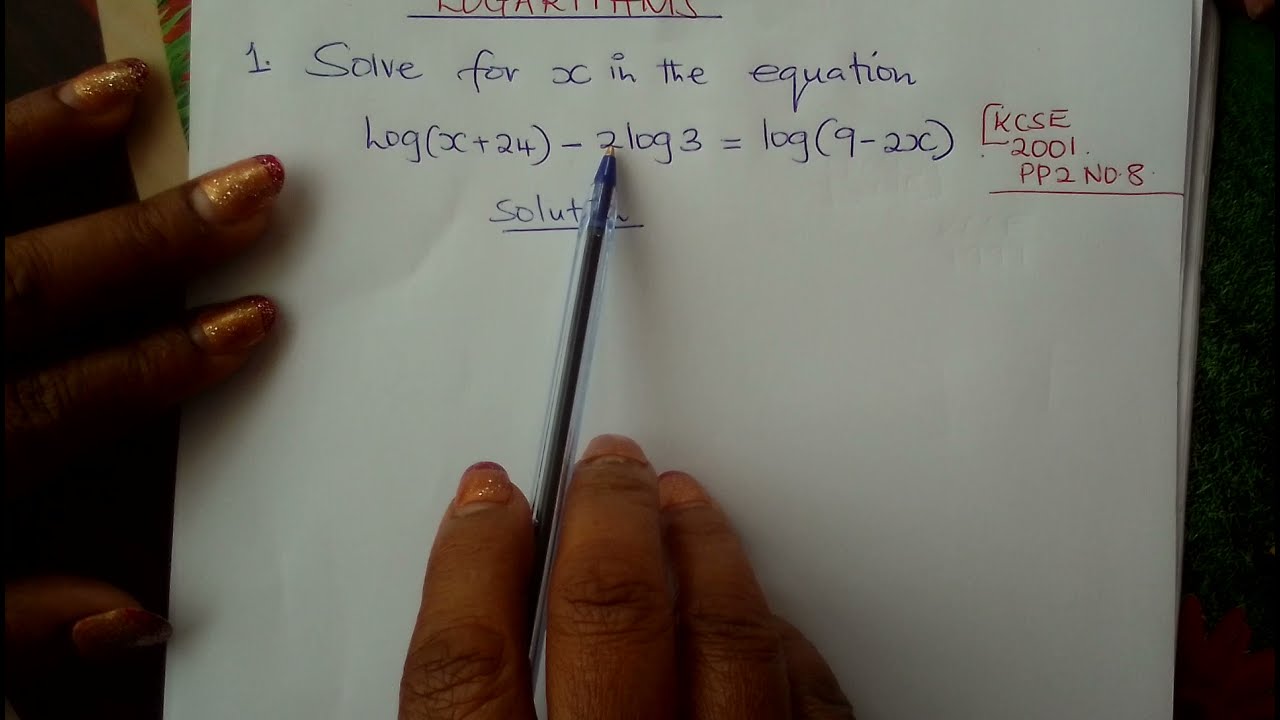 LOGARITHMS
1. Solve for x in the equation
Log(x+24) - 2log3 = log(9-2x)
[KCSE
2001.
PP2 NO.8.
Solution